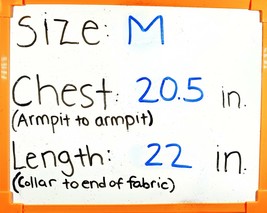 Size: M
Chest: 20.5 in.
(Armpit to armpit)
Length: 22 in.
(Collar to end of fabric)